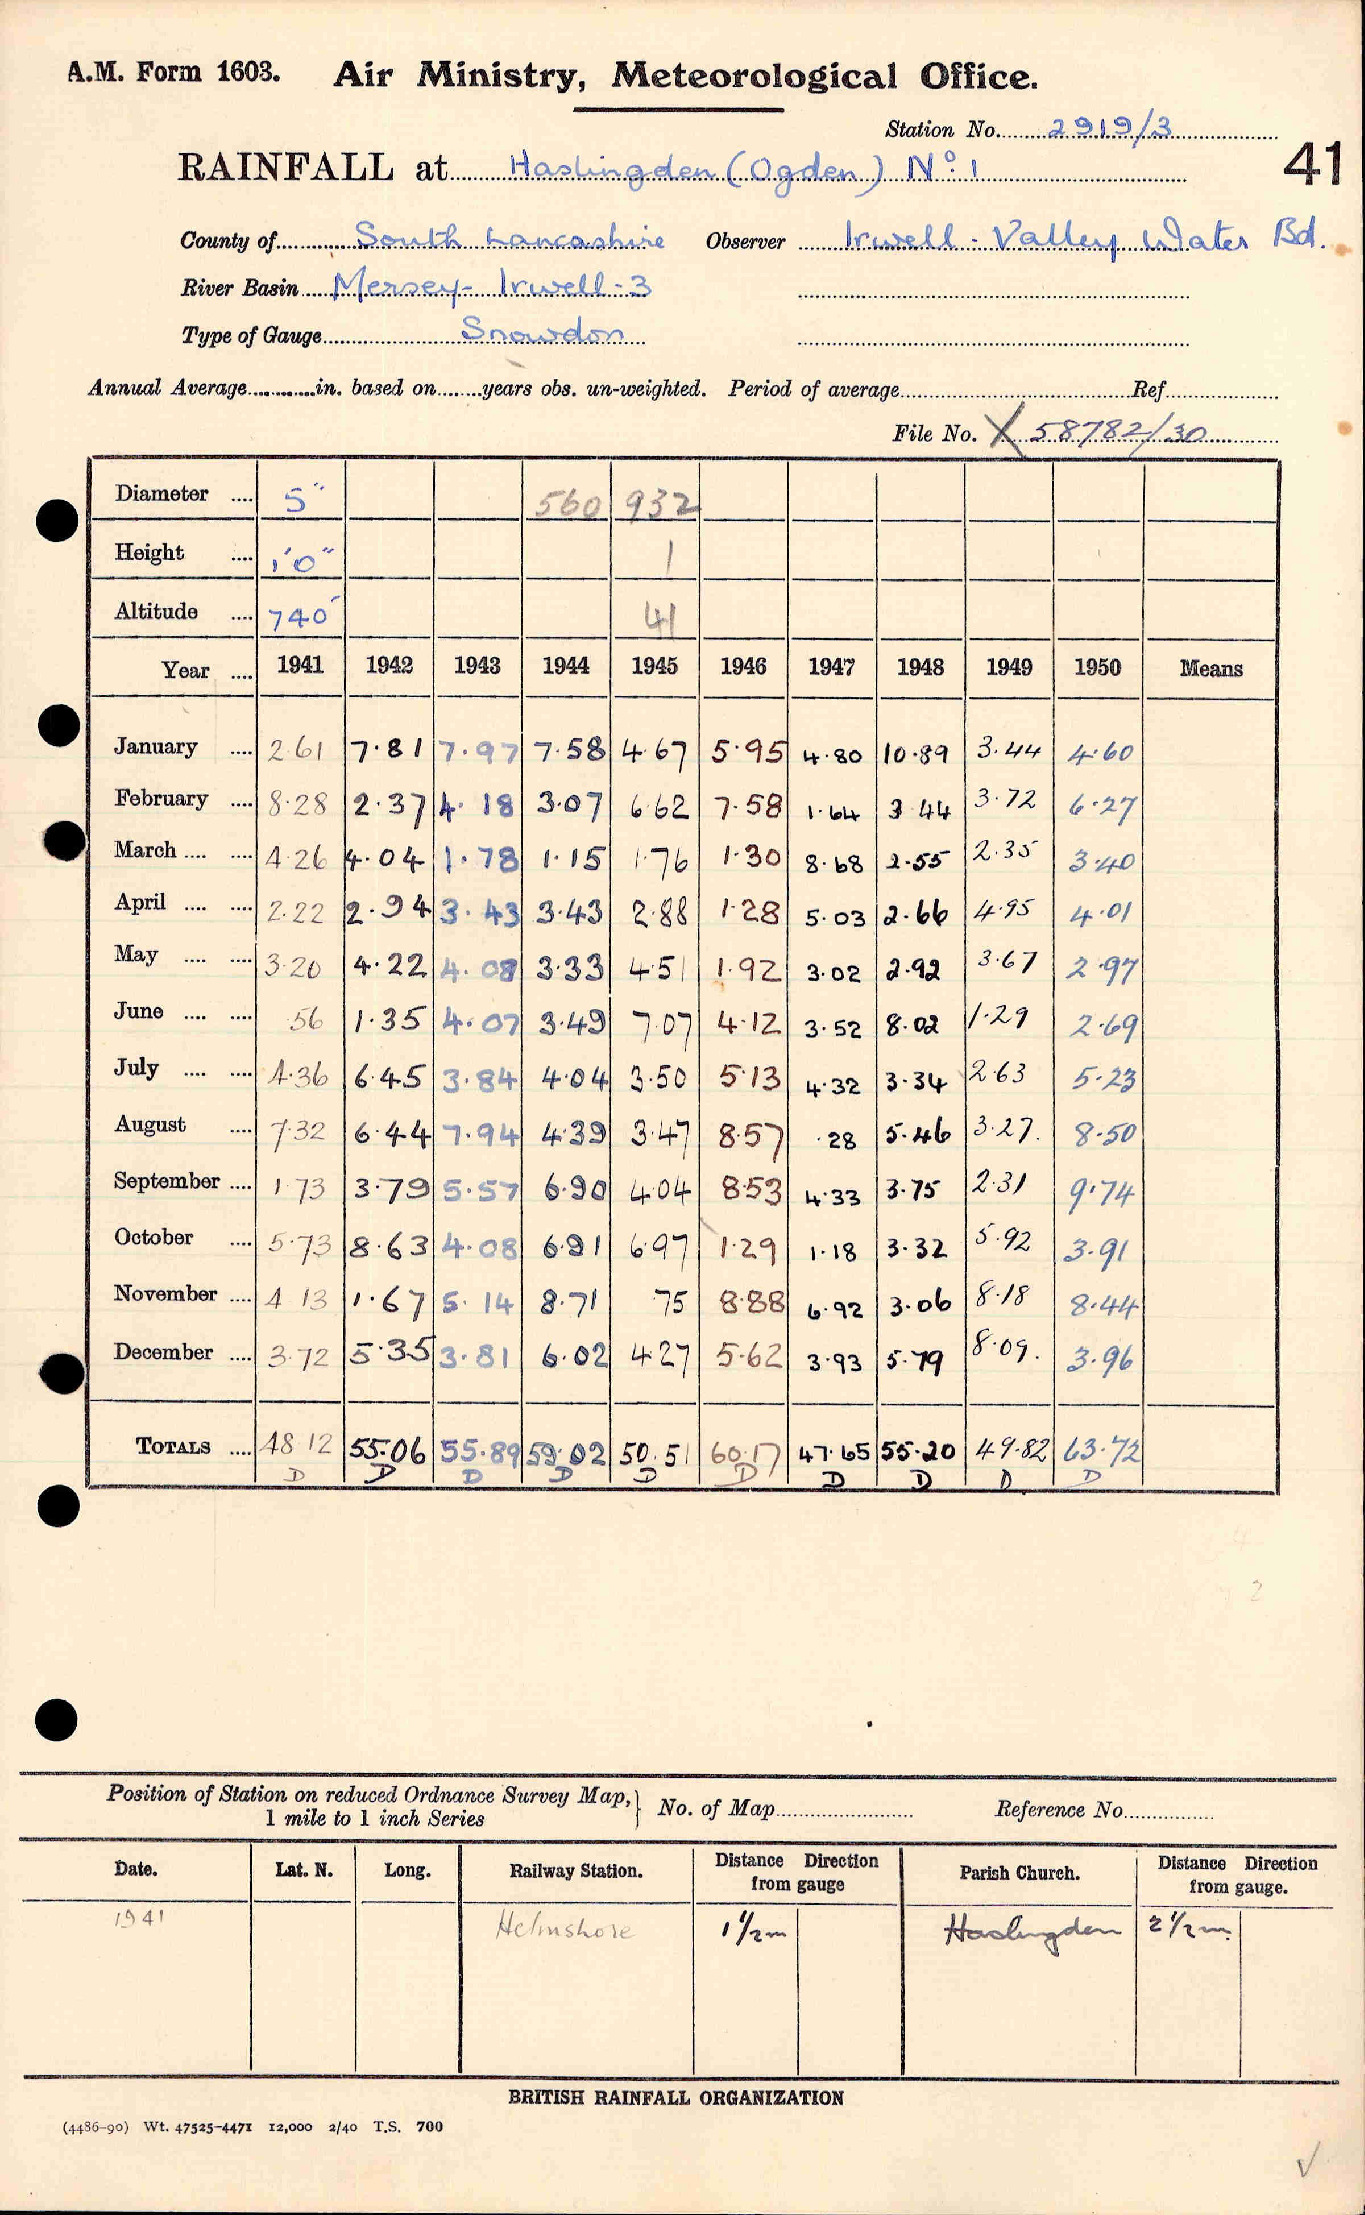 A.M. Form 1603. Air Ministry, Meteorological Office.
Station No. 2919/3
RAINFALL at Haslingden (Ogden) No. 1
41
County of South Lancashire Observer Irwell Valley Water Bd.
River Basin Mersey - Irwell - 3
Type of Gauge Snowdon
Annual Average in. based on years obs. un-weighted. Period of average Ref
File No. X 58782/30
Diameter 5" 560 932
Height 1'0" 1
Altitude 740' 41
Year 1941 1942 1943 1944 1945 1946 1947 1948 1949 1950 Means
January 2.61 7.81 7.97 7.58 4.67 5.95 4.80 10.89 3.44 4.60
February 8.28 2.37 4.18 3.07 6.62 7.58 1.64 3.44 3.72 6.27
March 4.26 4.04 1.78 1.15 1.76 1.30 8.68 2.55 2.35 3.40
April 2.22 2.94 3.43 3.43 2.88 1.28 5.03 2.66 4.95 4.01
May 3.20 4.22 4.08 3.33 4.51 1.92 3.02 2.92 3.67 2.97
June .56 1.35 4.07 3.49 7.07 4.12 3.52 8.02 1.29 2.69
July 4.36 6.45 3.84 4.04 3.50 5.13 4.32 3.34 2.63 5.23
August 7.32 6.44 7.94 4.39 3.47 8.57 .28 5.46 3.27. 8.50
September 1.73 3.79 5.57 6.90 4.04 8.53 4.33 3.75 2.31 9.74
October 5.73 8.63 4.08 6.91 6.97 1.29 1.18 3.32 5.92 3.91
November 4.13 1.67 5.14 8.71 .75 8.88 6.92 3.06 8.18 8.44
December 3.72 5.35 3.81 6.02 4.27 5.62 3.93 5.79 8.09. 3.96
TOTALS 48.12 55.06 55.89 59.02 50.51 60.17 47.65 55.20 49.82 63.72
D D D D D D D D D D
Position of Station on reduced Ordnance Survey Map, } No. of Map Reference No.
1 mile to 1 inch Series
Date. Lat. N. Long. Railway Station. Distance Direction from gauge Parish Church. Distance Direction from gauge.
1941 Helmshore 1 1/2 m Haslingden 2 1/2 m.
BRITISH RAINFALL ORGANIZATION
(4486-90) Wt. 47525-4471 12,000 2/40 T.S. 700